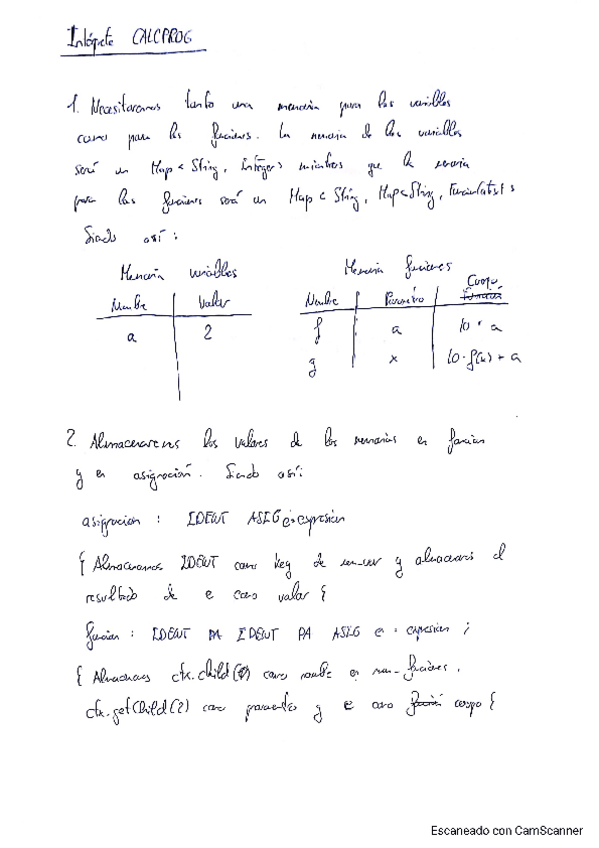 Intérprete CALCPROG
1. Necesitaremos tanto una memoria para las variables
como para las funciones. La memoria de las variables
será un Map < String, Integer > mientras que la memoria
para las funciones será un Map < String, Map<String,
Siendo así :
Memoria variables
Nombre Valor
a 2
Memoria funciones
Nombre Parametro Cuerpo
f a 10 * a
g x 10 · f(x) + a
2. Almacenaremos los valores de las memorias en funcion
y en asignación. Siendo así:
asignacion : IDENT ASIG e=expresion
{ Almacenamos IDENT como key de mem-var y almacenamos el
resultado de e como valor {
funcion : IDENT PA IDENT ASIG e = expresion ;
{ Almacenamos ctx.child(0) como nombre en mem-funciones,
ctx.getChild(2) como parametro y e como cuerpo {
Escaneado con CamScanner